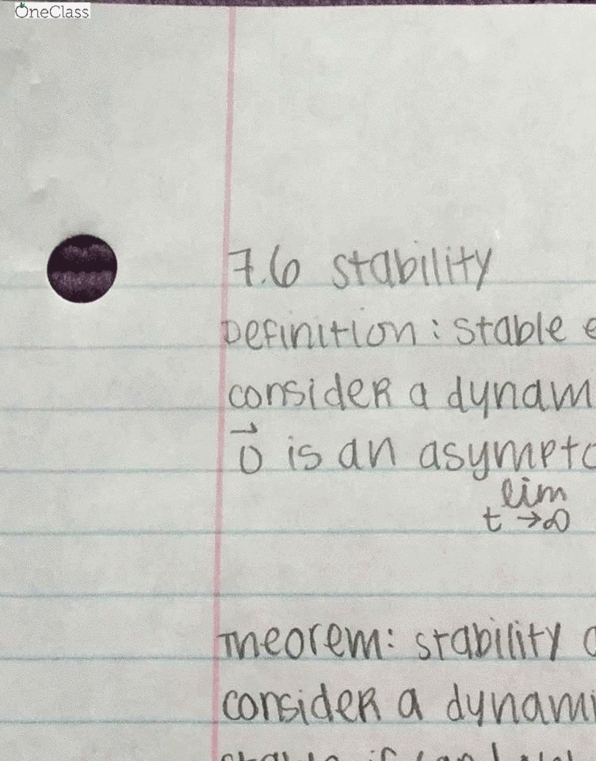 OneClass
7.6 stability
Definition: stable e
consider a dynam
0⃗ is an asympto
lim
t →∞
Theorem: stability o
consider a dynami